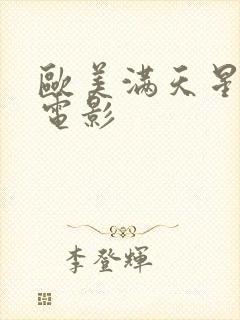 歐美滿天星
電影
李登輝